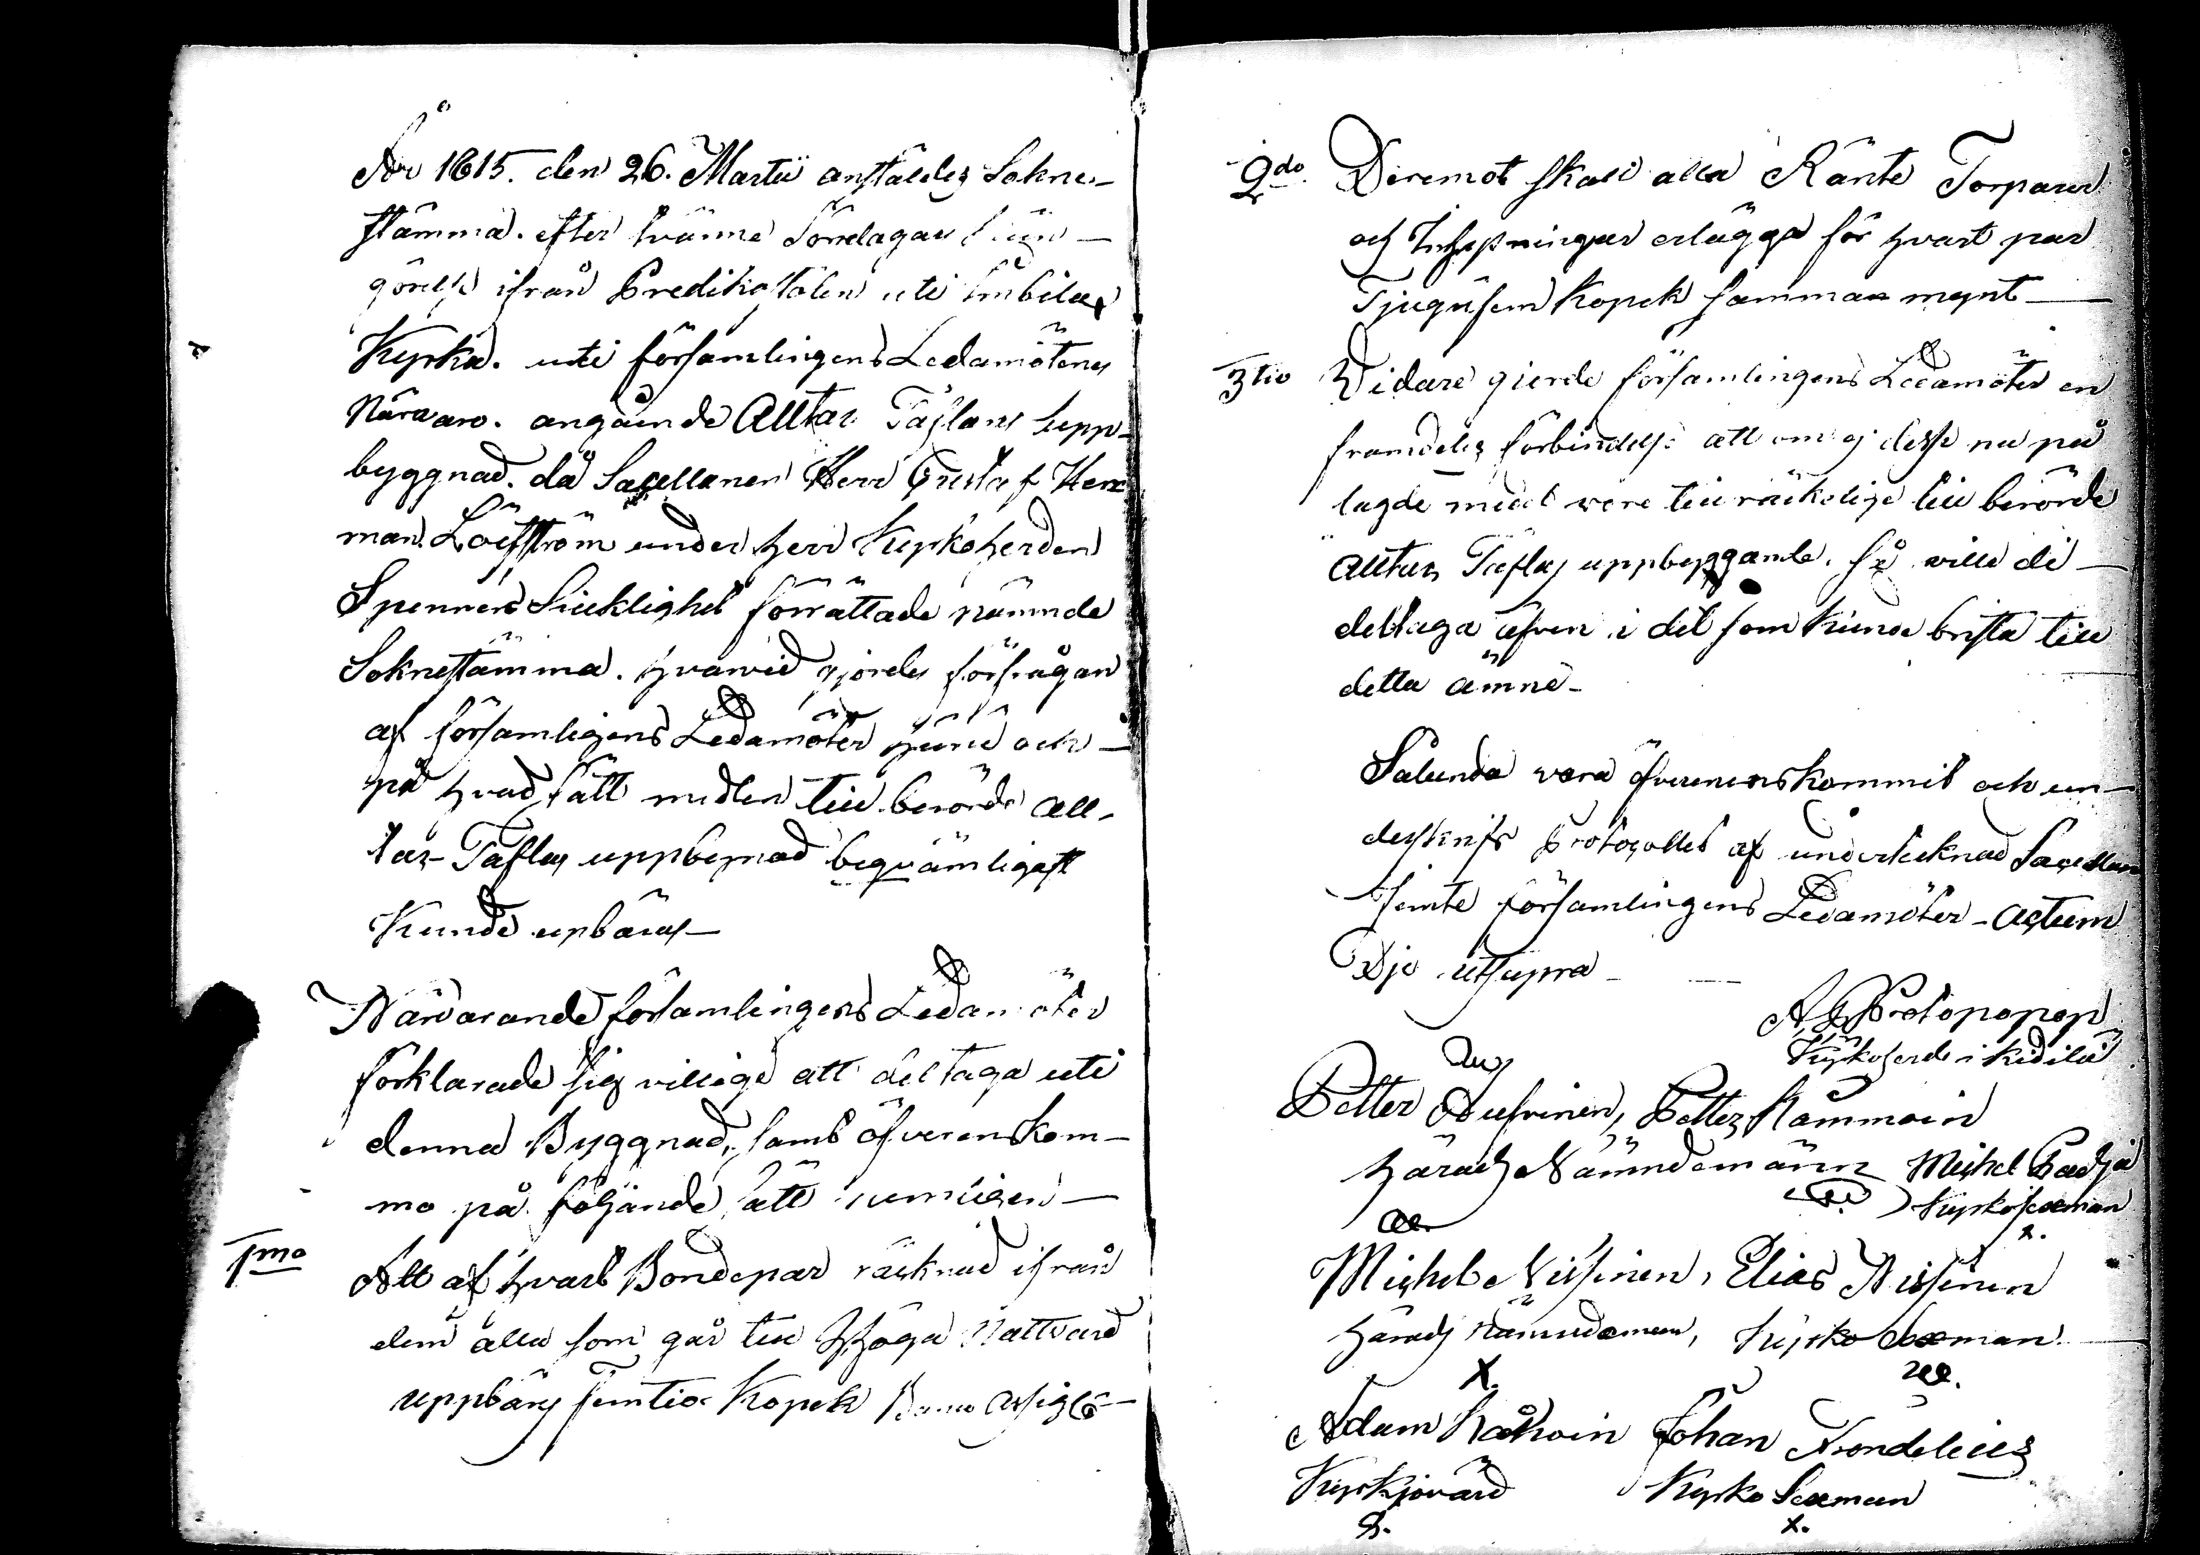 År 1815. den 26. Martii anstäldes Sokne-
stämma. efter tvänne Söndagars kun-
görelse ifrån Predikostolen uti Imbilax
Kyrka. uti församlingens Ledamöters
Närvaro. angående Alltar Taflans upp-
byggnad. då Sacellanen Herr Gustaf Her
man Löfström under herr Kyrkoherden
Siuklighet förrättade nämnde
Soknestämma. hvarvid gjordes förfrågan
af församligens Ledamöter huru och
på hvad sätt medlen till berörde All-
tar-Taflas uppbygnad beqvämligast
Kunde upbäras
Närvarande församlingens Ledamöter
förklarade sig villige att deltaga uti
denna Byggnad, samt öfverenskom-
mo på följande sätt nemligen
1mo Att af hvart Bondepar räcknad ifrån
dem alla som går till H. Höga Nattvard
uppbärs femtio Kopek Banco Assig
2do Deremot skall alla Ränte Torpare
och Inhysningar erlägga för hvart par
Tjugufem Kopek samma mynt
3tio Vidare gierde församlingens Ledamöter en
framdeles förbindelse att om ej desse nu på
lagde medel vore till räckelige till berörde
Alltar Taflas uppbyggande. så wille de
deltaga äfven i det som kunde brista till
detta ämne-
Sålunda vara öfverenskommit och un-
derskrifs Protocollet af undertecknad Sacellan
jemte församlingens Ledamöter - Actum
Die ut supra
Protopopop
Kyrkoherde i Kidila
Petter Petter
härads Nämndemänn Michel
Kyrkosexman
x.
Michel Nissinen, Elias Nissinen
härads nämndeman, kyrko Sexman
X.
Adam Johan Trondelius
Kyrkjovärd Kyrko Sexman
x.